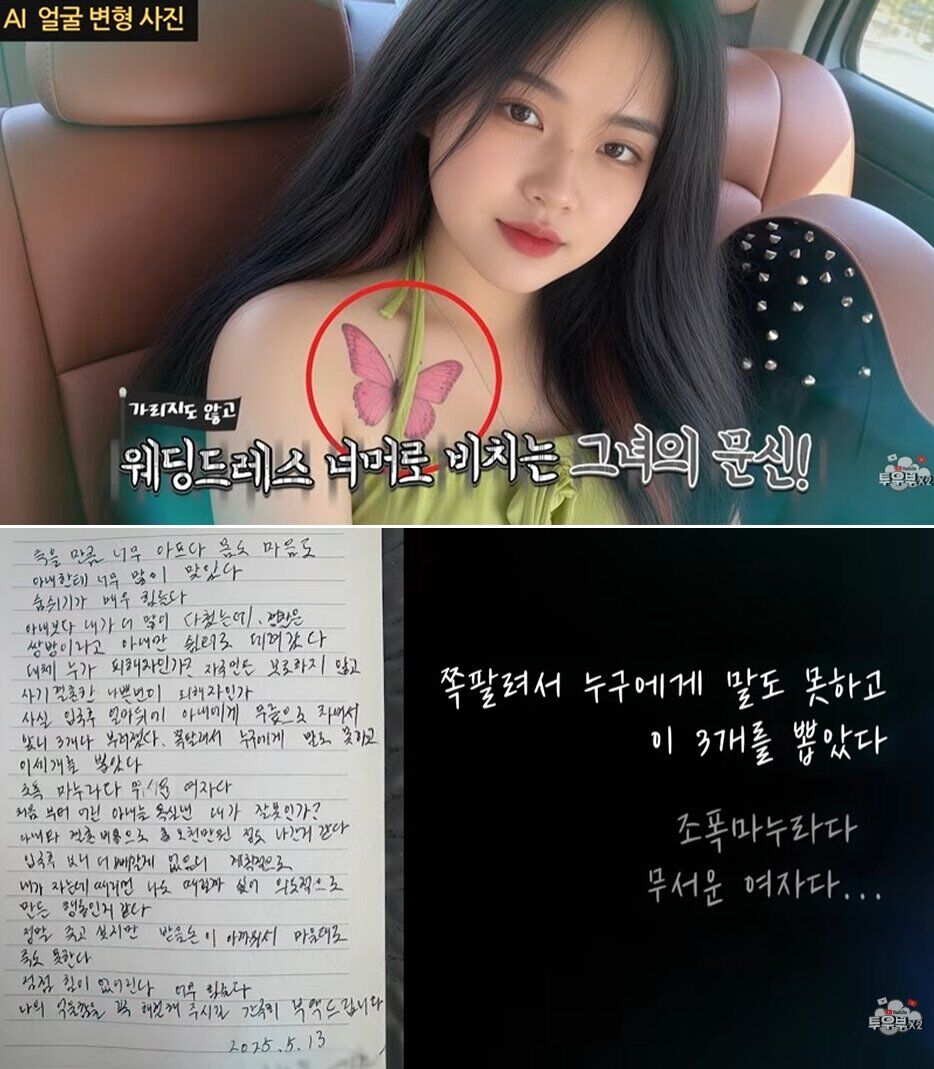 AI 얼굴 변형 사진
가리지도 않고
웨딩드레스 너머로 비치는 그녀의 문신!
YouTube
투우부X2
죽을 만큼 너무 아프다 몸도 마음도
아내한테 너무 많이 맞았다
숨쉬기가 매우 힘들다
아내보다 내가 더 많이 다쳤는데. 경찰은
쌍방이라고 아내만 쉼터로 데려갔다
대체 누가 피해자인가? 자국민은 보호하지 않고
사기결혼한 나쁜년이 피해자인가
사실 입국후 얼마뒤에 아내에게 무릎으로 차여서
앞니 3개나 부러졌다. 쪽팔려서 누구에게 말도 못하고
이세개를 뽑았다
조폭 마누라다 무서운 여자다
처음 부터 어린 아내는 욕심낸 내가 잘못인가?
아내와 결혼비용으로 총 오천만원 정도 나간거 같다
입국후 보니 더 빼갈게 없으니 계획적으로
내가 자는데 때리면 나도 때릴까 싶어 의도적으로
만든 행동인거 같다
정말 죽고 싶지만 받을돈이 아까워서 마음대로
죽도 못한다
점점 힘이 없어진다 너무 힘들다
나의 억울함을 꼭 해결해 주시길 간곡히 부탁드립니다
2025.5.13
쪽팔려서 누구에게 말도 못하고
이 3개를 뽑았다
조폭마누라다
무서운 여자다...
YouTube
투우부X2